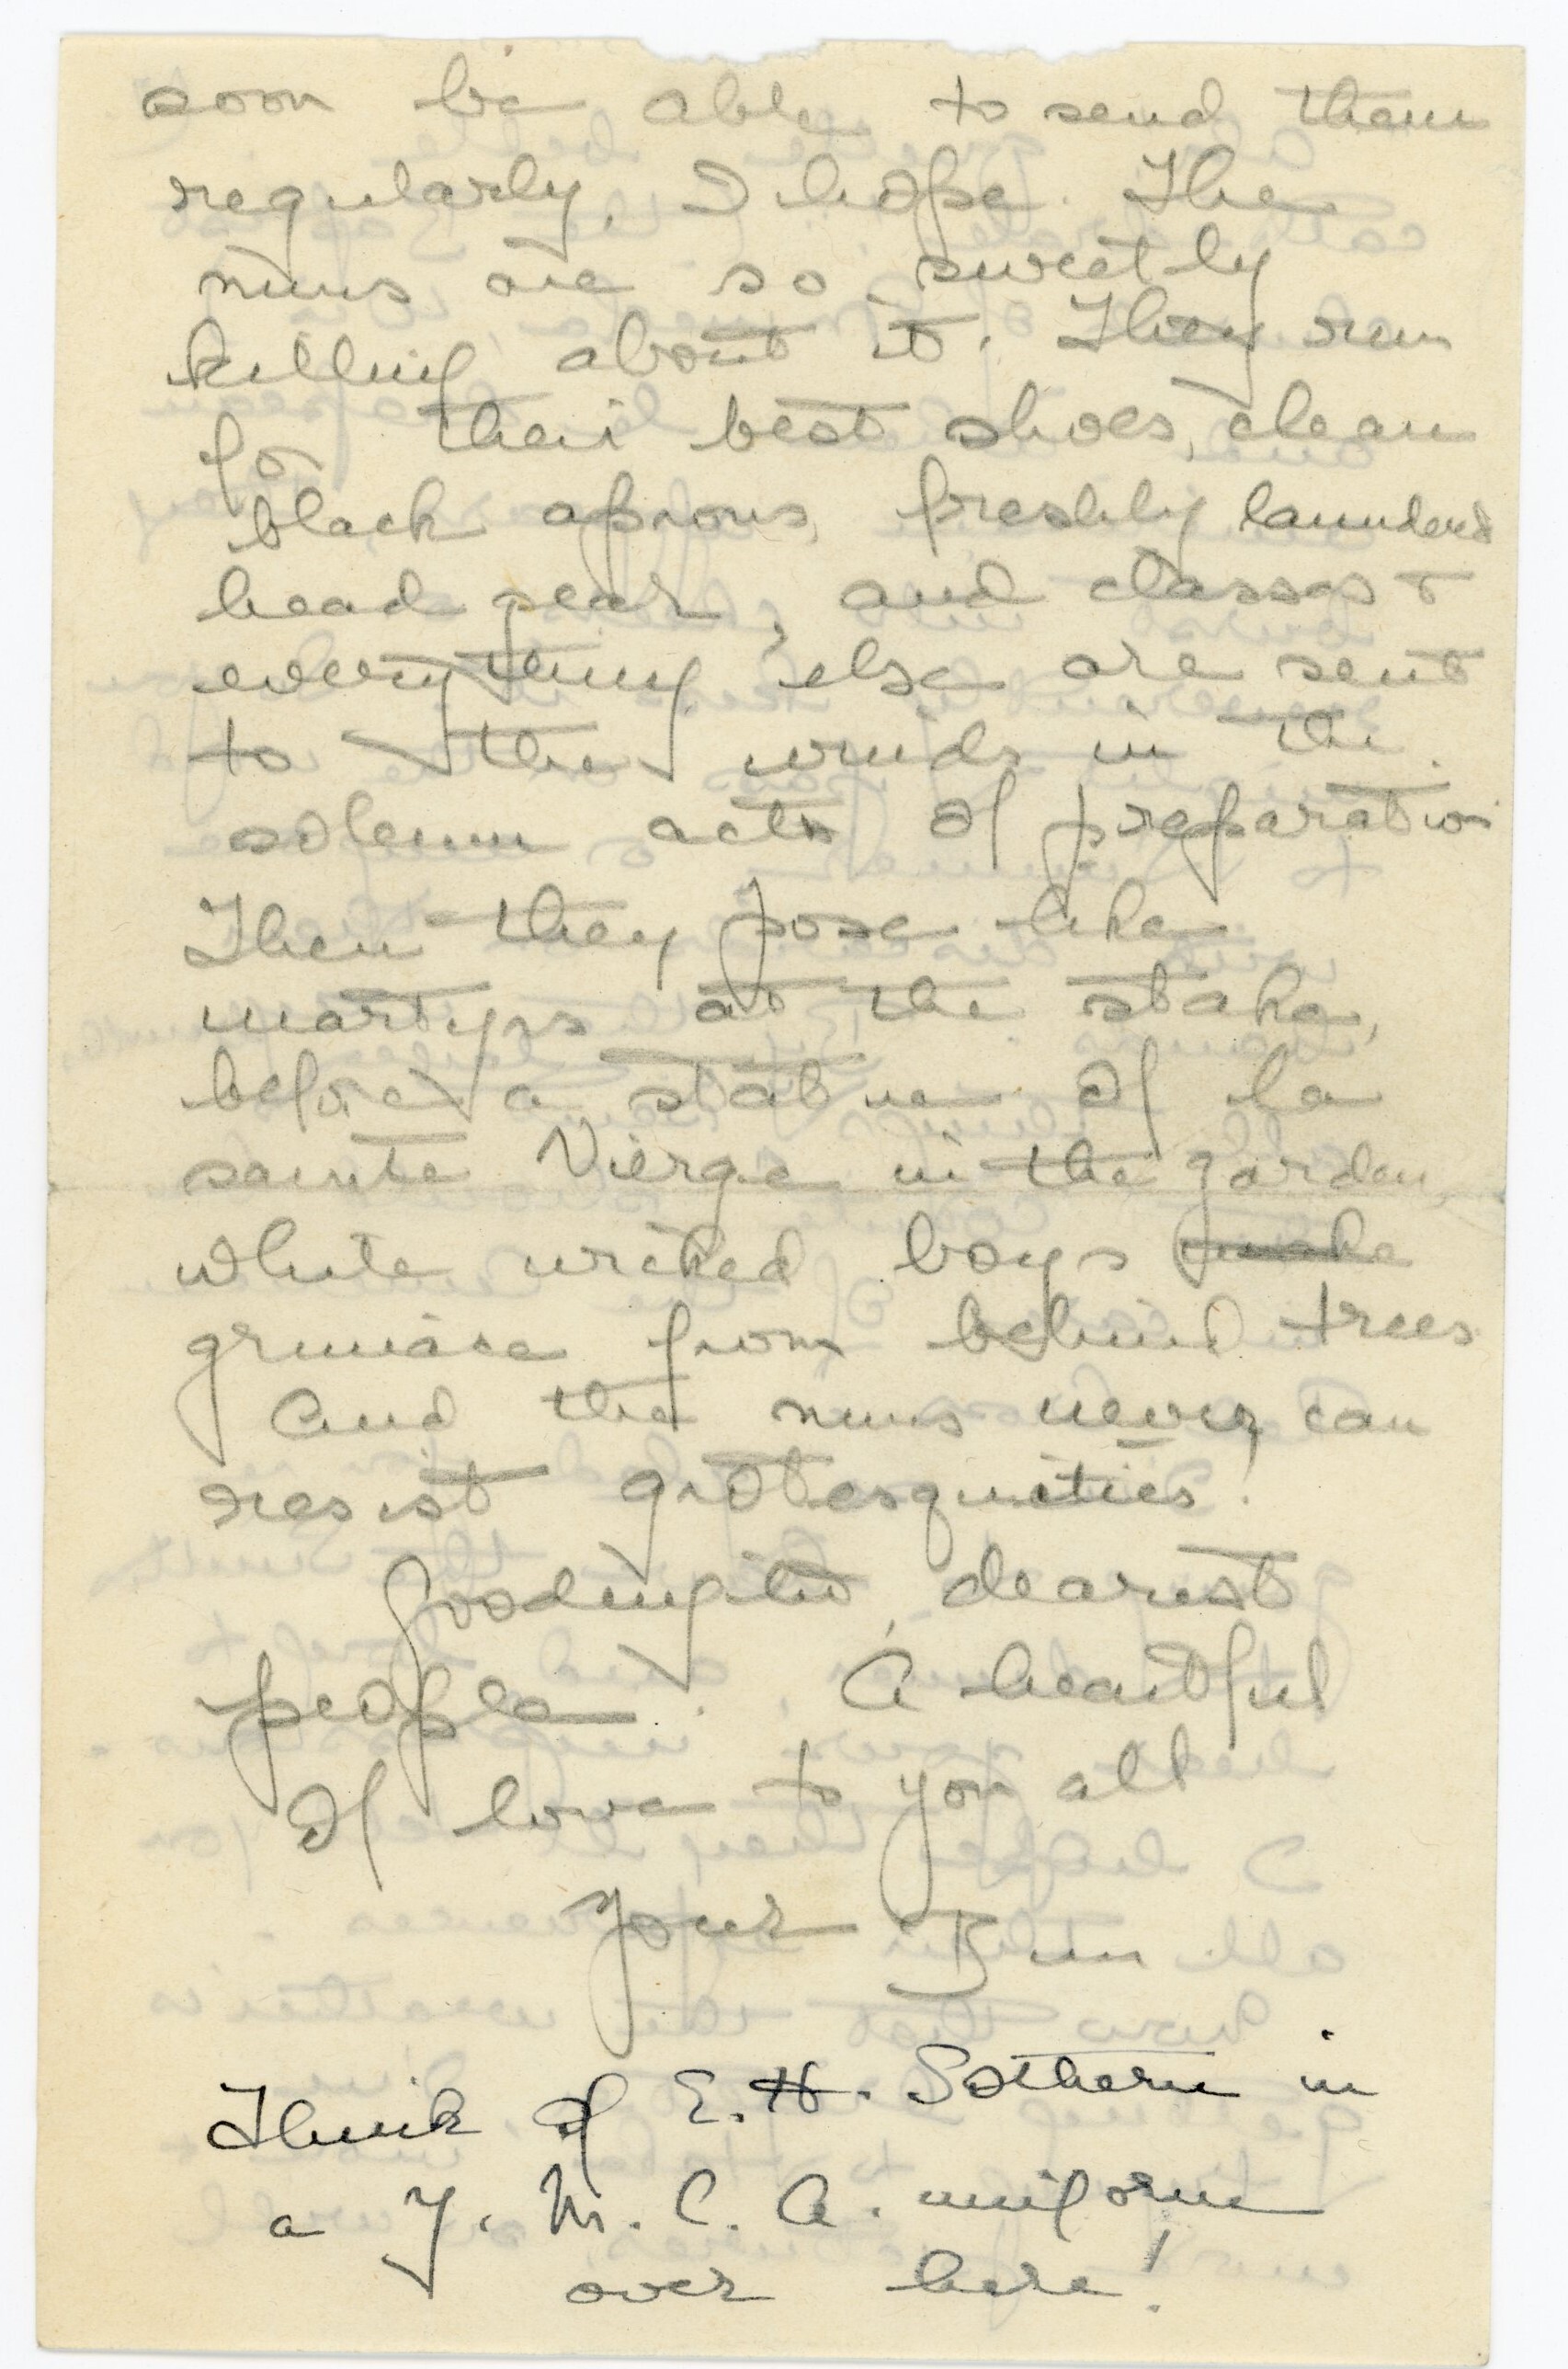 soon be able to send them
regularly, I hope. The
nuns are so sweetly
killing about it. They run
for their best shoes, clean
black aprons, freshly laundered
head gear, and classes &
everything else are sent
to the winds in the
solemn acts of preparation
Then they pose like
martyrs at the stake,
before a statue of la
sainte Vierge in the garden
while wicked boys make
grimace from behind trees
And the nuns never can
resist grotesquities!
Goodnight, dearest
people. A heartful
of love to you all
Your Bun
Think of E. H. Sothern in
a Y. M. C. A. uniform
over here!